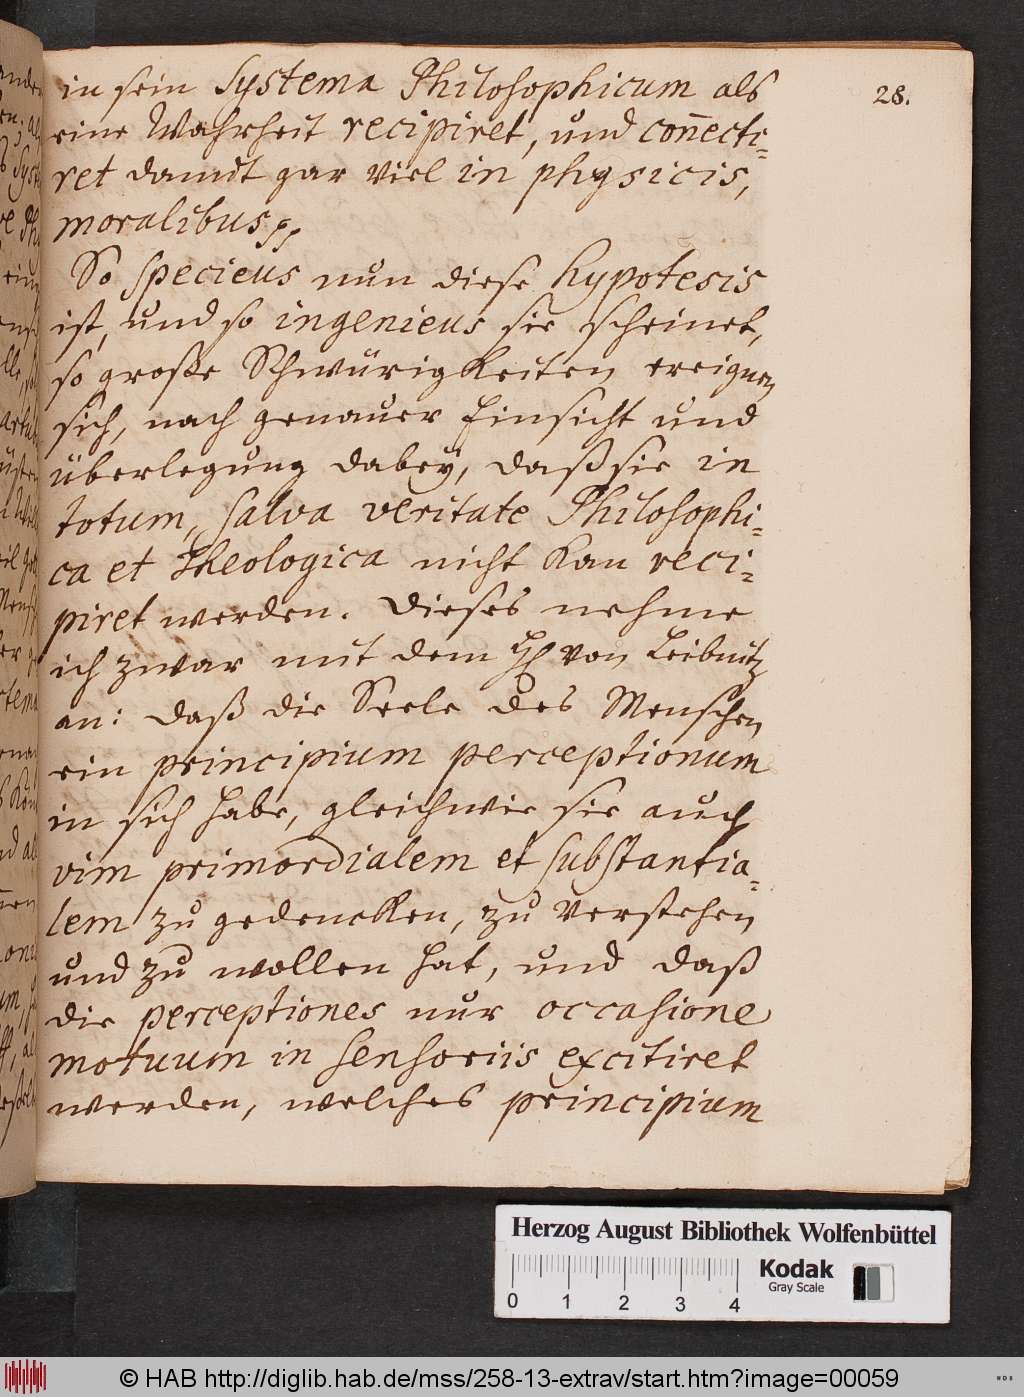 28.
in sein Systema Philosophicum als
eine Wahrheit recipiret, und con̄ecti=
ret damit gar viel in physicis,
moralibus pp
So specieus nun diese hypotesis
ist, und so ingenieus sie scheinet,
so große Schwürigkeiten ereignen
sich, nach genauer Einsicht und
überlegung dabey, daß sie in
totum, salva veritate Philosophi=
ca et Theologica nicht kan reci=
piret werden. Dieses nehme
ich zwar mit dem H von Leibnitz
an: daß die Seele des Menschen
ein principium perceptionum
in sich habe, gleichwie sie auch
vim primordialem et substantia=
lem zu gedencken, zu verstehen
und zu wollen hat, und daß
die perceptiones nur occasione
motuum in sensoriis excitiret
werden, welches principium
Herzog August Bibliothek Wolfenbüttel
Kodak
Gray Scale
0 1 2 3 4
© HAB http://diglib.hab.de/mss/258-13-extrav/start.htm?image=00059